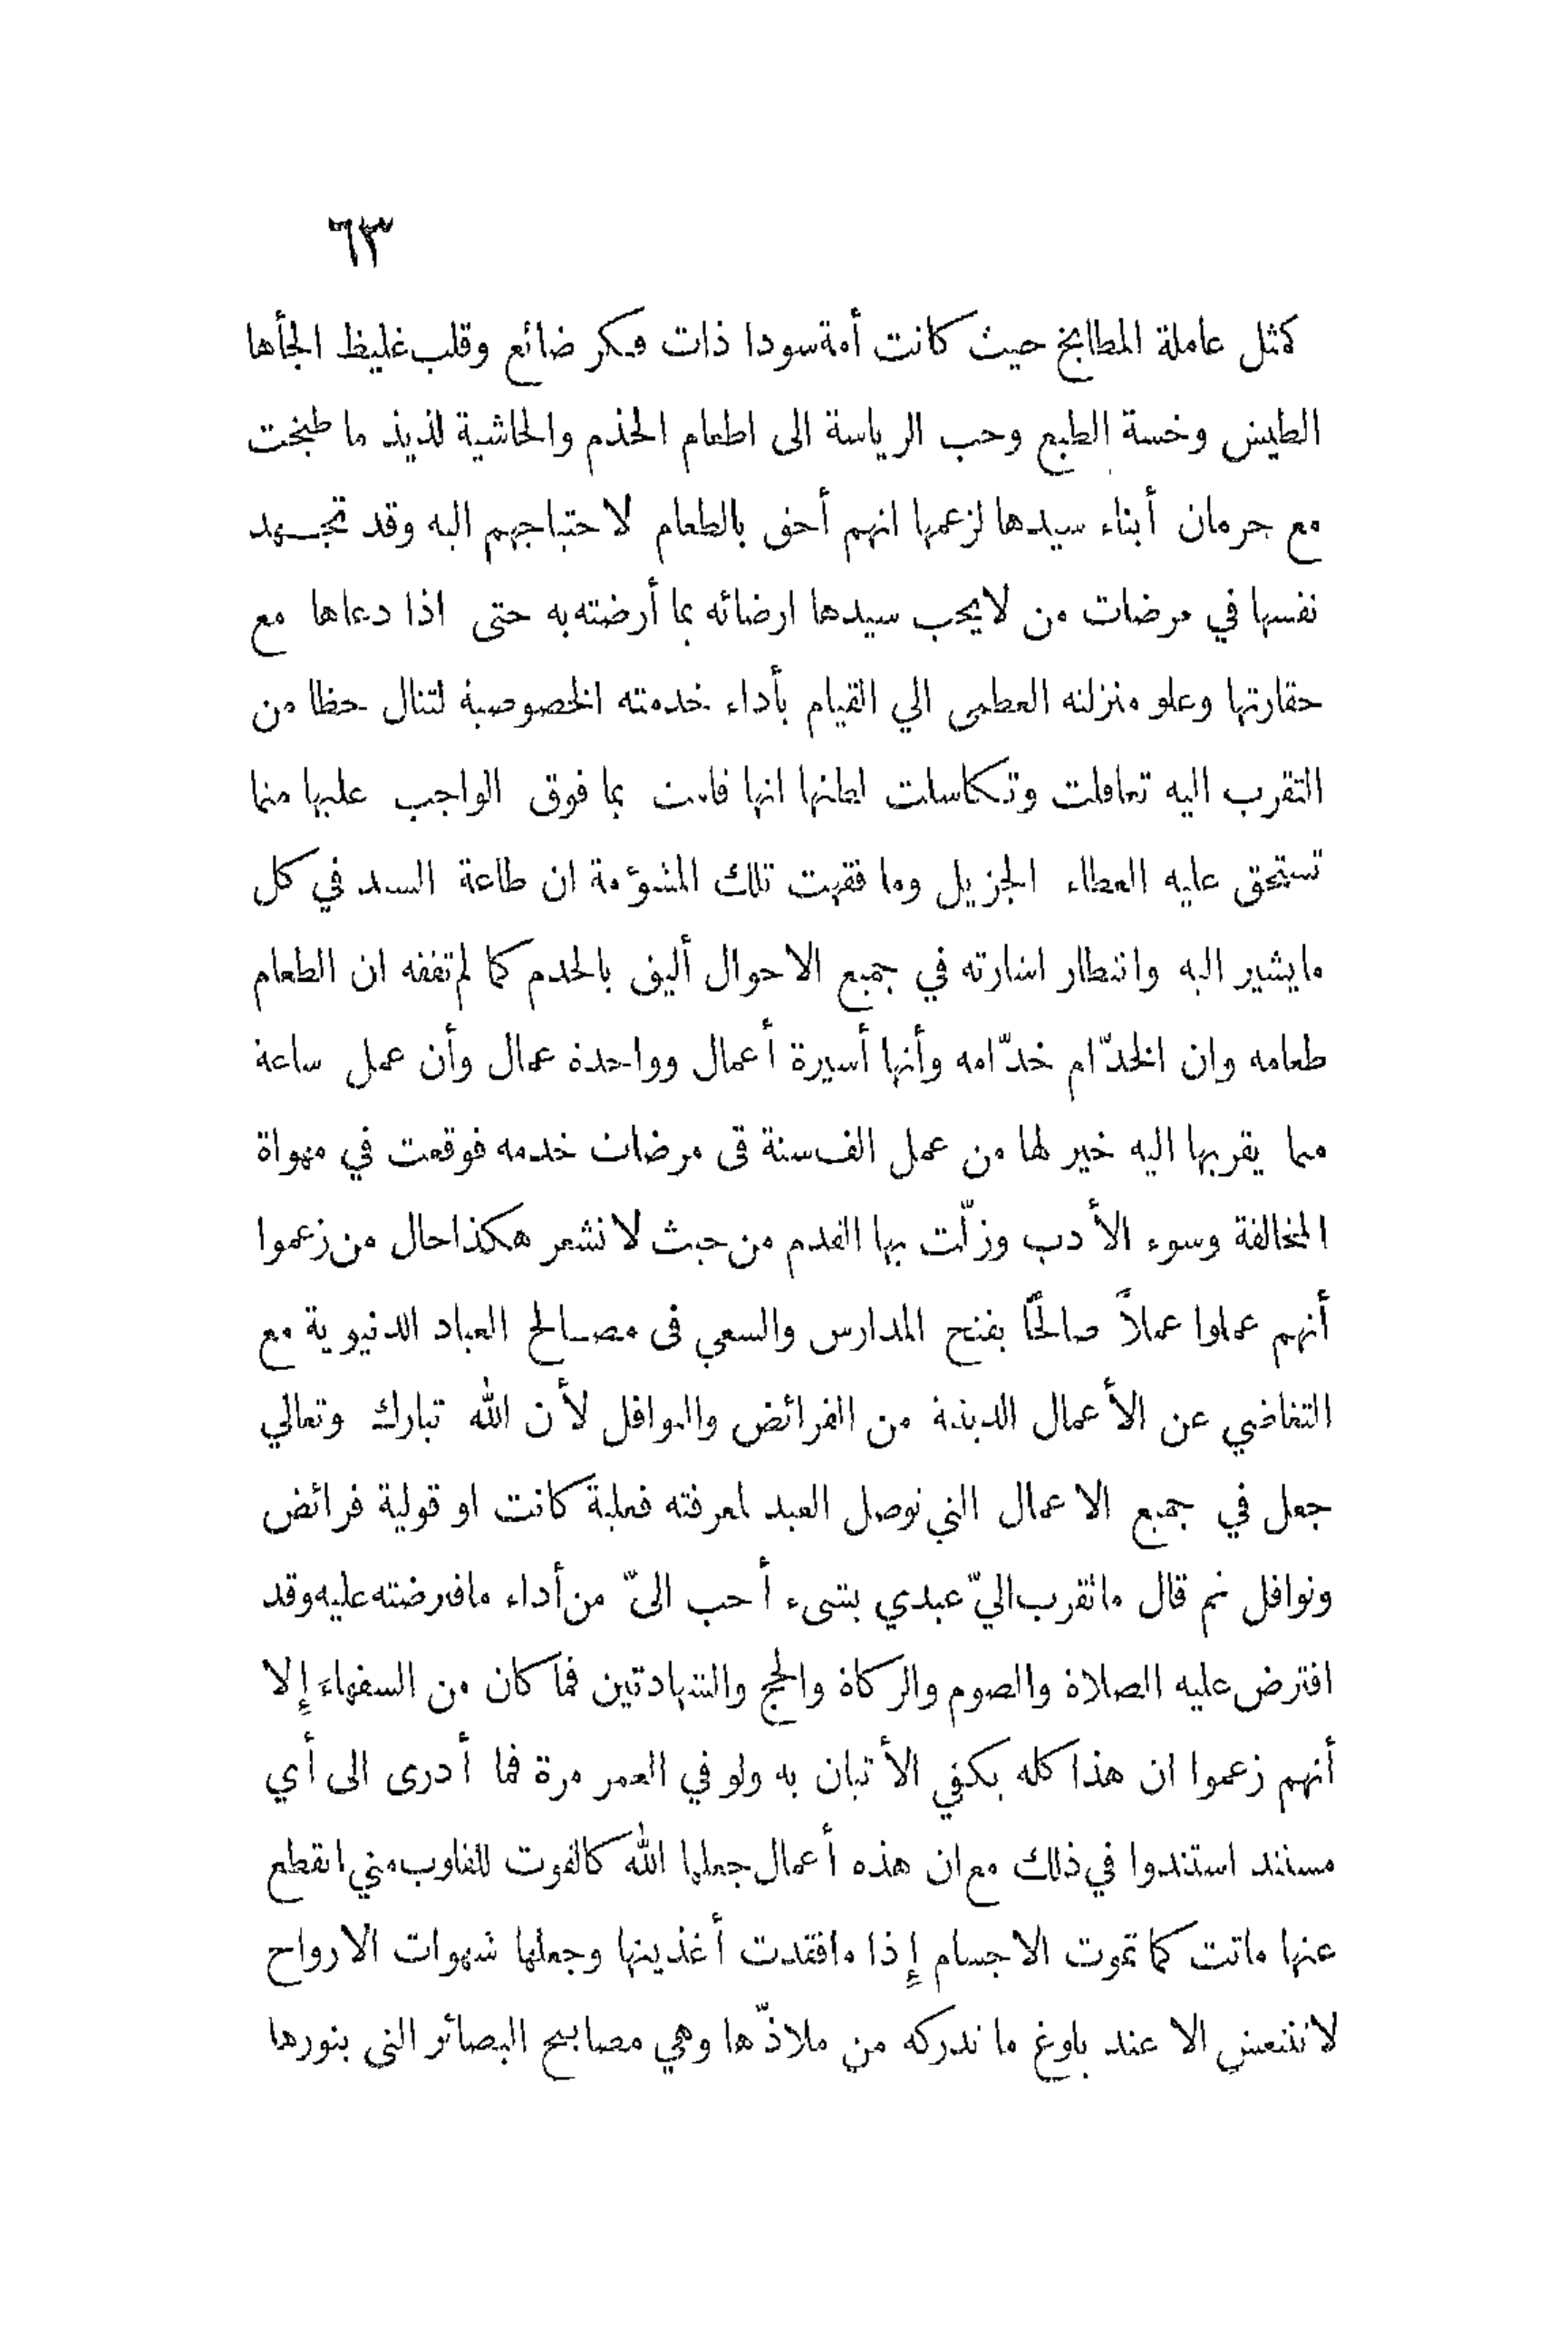 ٦٣
كمثل عاملة المطابخ حيث كانت أمة سودا ذات فكر ضائع وقلب غليظ الجأها
الطيش وخسة الطبع وحب الرياسة الى اطعام الخدم والحاشية لذيذ ما طبخت
مع حرمان أبناء سيدها لزعمها انهم أحق بالطعام لاحتياجهم اليه وقد تجهد
نفسها في مرضات من لايحب سيدها ارضائه بما أرضته به حتى اذا دعاها مع
حقارتها وعلو منزلته العظمى الي القيام بأداء خدمته الخصوصية لتنال حظا من
التقرب اليه تغافلت وتكاسلت لظنها انها قامت بما فوق الواجب عليها مما
تستحق عليه العطاء الجزيل وما فقهت تلك المشؤمة ان طاعة السيد في كل
مايشير اليه وانتظار اشارته في جميع الاحوال أليق بالخدم كما لم تفقه ان الطعام
طعامه وان الخدّام خدّامه وأنها أسيرة أعمال وواحدة عمال وأن عمل ساعة
مما يقربها اليه خير لها من عمل الف سنة فى مرضات خدمه فوقعت في مهواة
المخالفة وسوء الأدب وزلّت بها القدم من حيث لا تشعر هكذا حال من زعموا
أنهم عملوا عملاً صالحًا بفتح المدارس والسعي فى مصالح العباد الدنيوية مع
التغاضي عن الأعمال الدينية من الفرائض والنوافل لأن الله تبارك وتعالي
جعل في جميع الاعمال التي توصل العبد لمعرفته فعلية كانت او قولية فرائض
ونوافل ثم قال ماتقرب اليّ عبدي بشىء أحب الىّ من أداء مافرضته عليه وقد
افترض عليه الصلاة والصوم والزكاة والحج والشهادتين فما كان من السفهاء إلا
أنهم زعموا ان هذا كله يكفي الأتيان به ولو في العمر مرة فما أدرى الى أي
مستند استندوا في ذلك مع ان هذه أعمال جعلها الله كالقوت للقلوب متي انقطع
عنها ماتت كما تموت الاجسام إذا مافقدت أغذيتها وجعلها شهوات الارواح
لاتنتعش الا عند بلوغ ما تدركه من ملاذّها وهي مصابيح البصائر التى بنورها